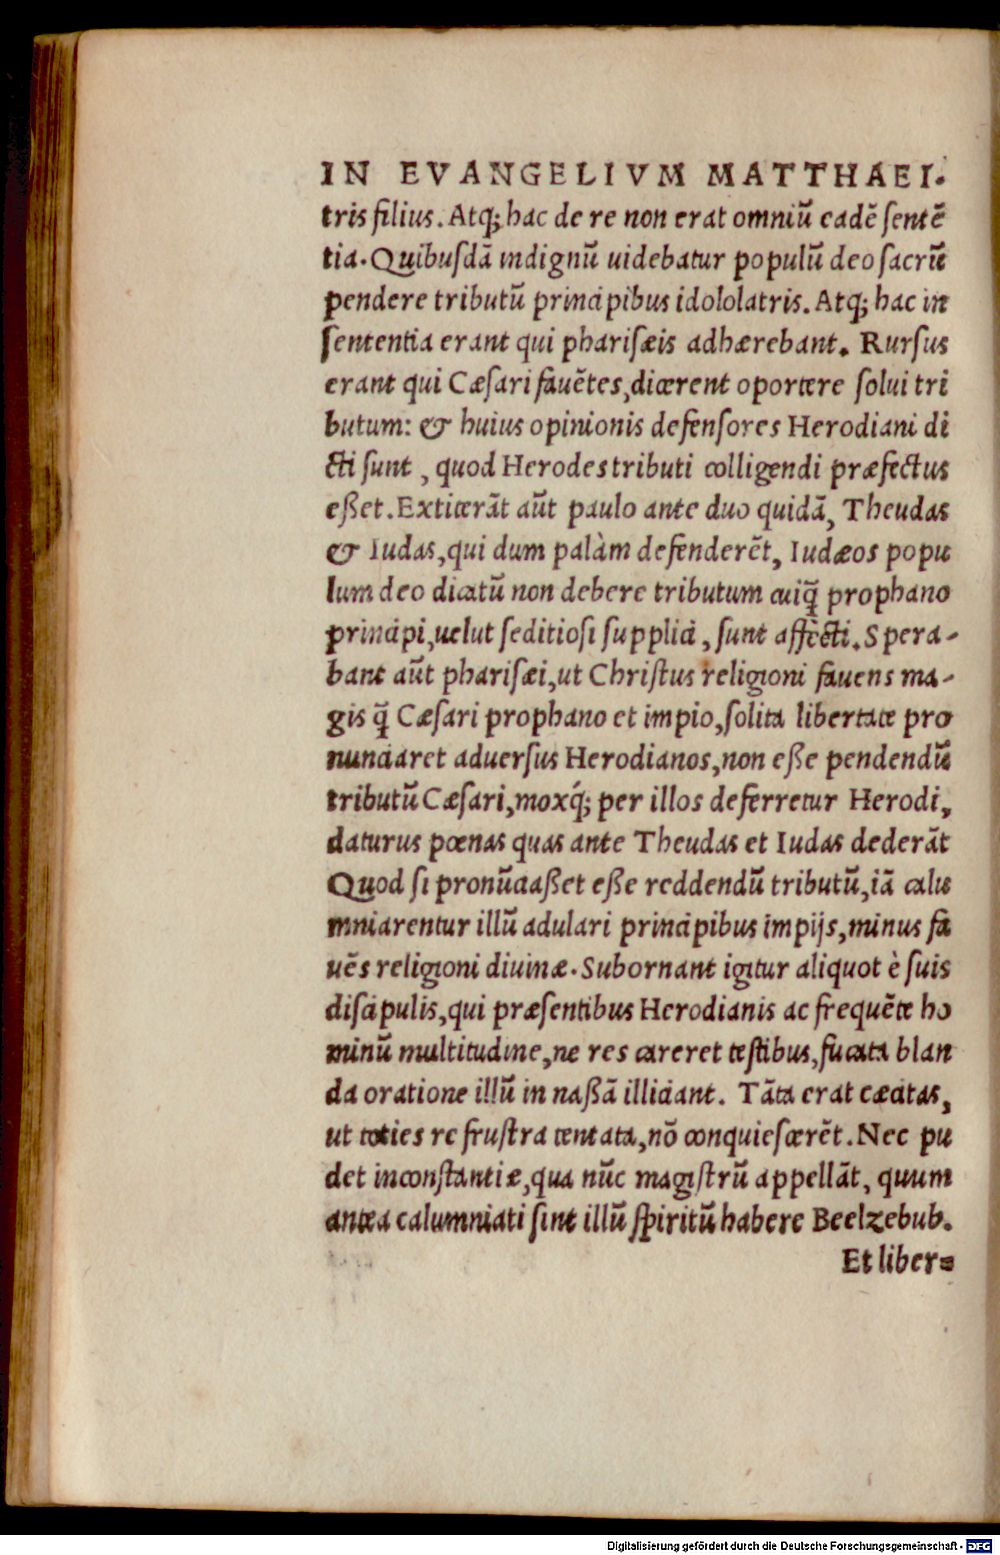 IN EVANGELIVM MATTHAEI.
tris filius. Atq; hac de re non erat omniū eadē sentē
tia. Quibusdā indignū uidebatur populū deo sacrū
pendere tributū principibus idololatris. Atq; hac in
sententia erant qui pharisæis adhærebant. Rursus
erant qui Cæsari fauētes, dicerent oportere solui tri
butum: & huius opinionis defensores Herodiani di
cti sunt, quod Herodes tributi colligendi præfectus
eßet. Extiterāt aūt paulo ante duo quidā, Theudas
& Iudas, qui dum palàm defenderēt, Iudæos popu
lum deo dicatū non debere tributum cuiq̃ prophano
principi, uelut seditiosi supplicii, sunt affecti. Spera-
bant aūt pharisæi, ut Christus religioni fauens ma-
gis q̃ Cæsari prophano et impio, solita libertate pro
nunciaret aduersus Herodianos, non eße pendendū
tributū Cæsari, moxq́; per illos deferretur Herodi,
daturus pœnas quas ante Theudas et Iudas dederāt
Quod si pronūciaßet eße reddendū tributū, iā calu
mniarentur illū adulari principibus impijs, minus fa
uēs religioni diuinæ. Subornant igitur aliquot è suis
discipulis, qui præsentibus Herodianis ac frequēte ho
minū multitudine, ne res careret testibus, fucata blan
da oratione illū in naßā illiciant. Tāta erat cæcitas,
ut toties re frustra tentata, nō conquiescerēt. Nec pu
det inconstantiæ, qua nūc magistrū appellāt, quum
antea calumniati sint illū spiritū habere Beelzebub.
Et liber=
Digitalisierung gefördert durch die Deutsche Forschungsgemeinschaft - DFG